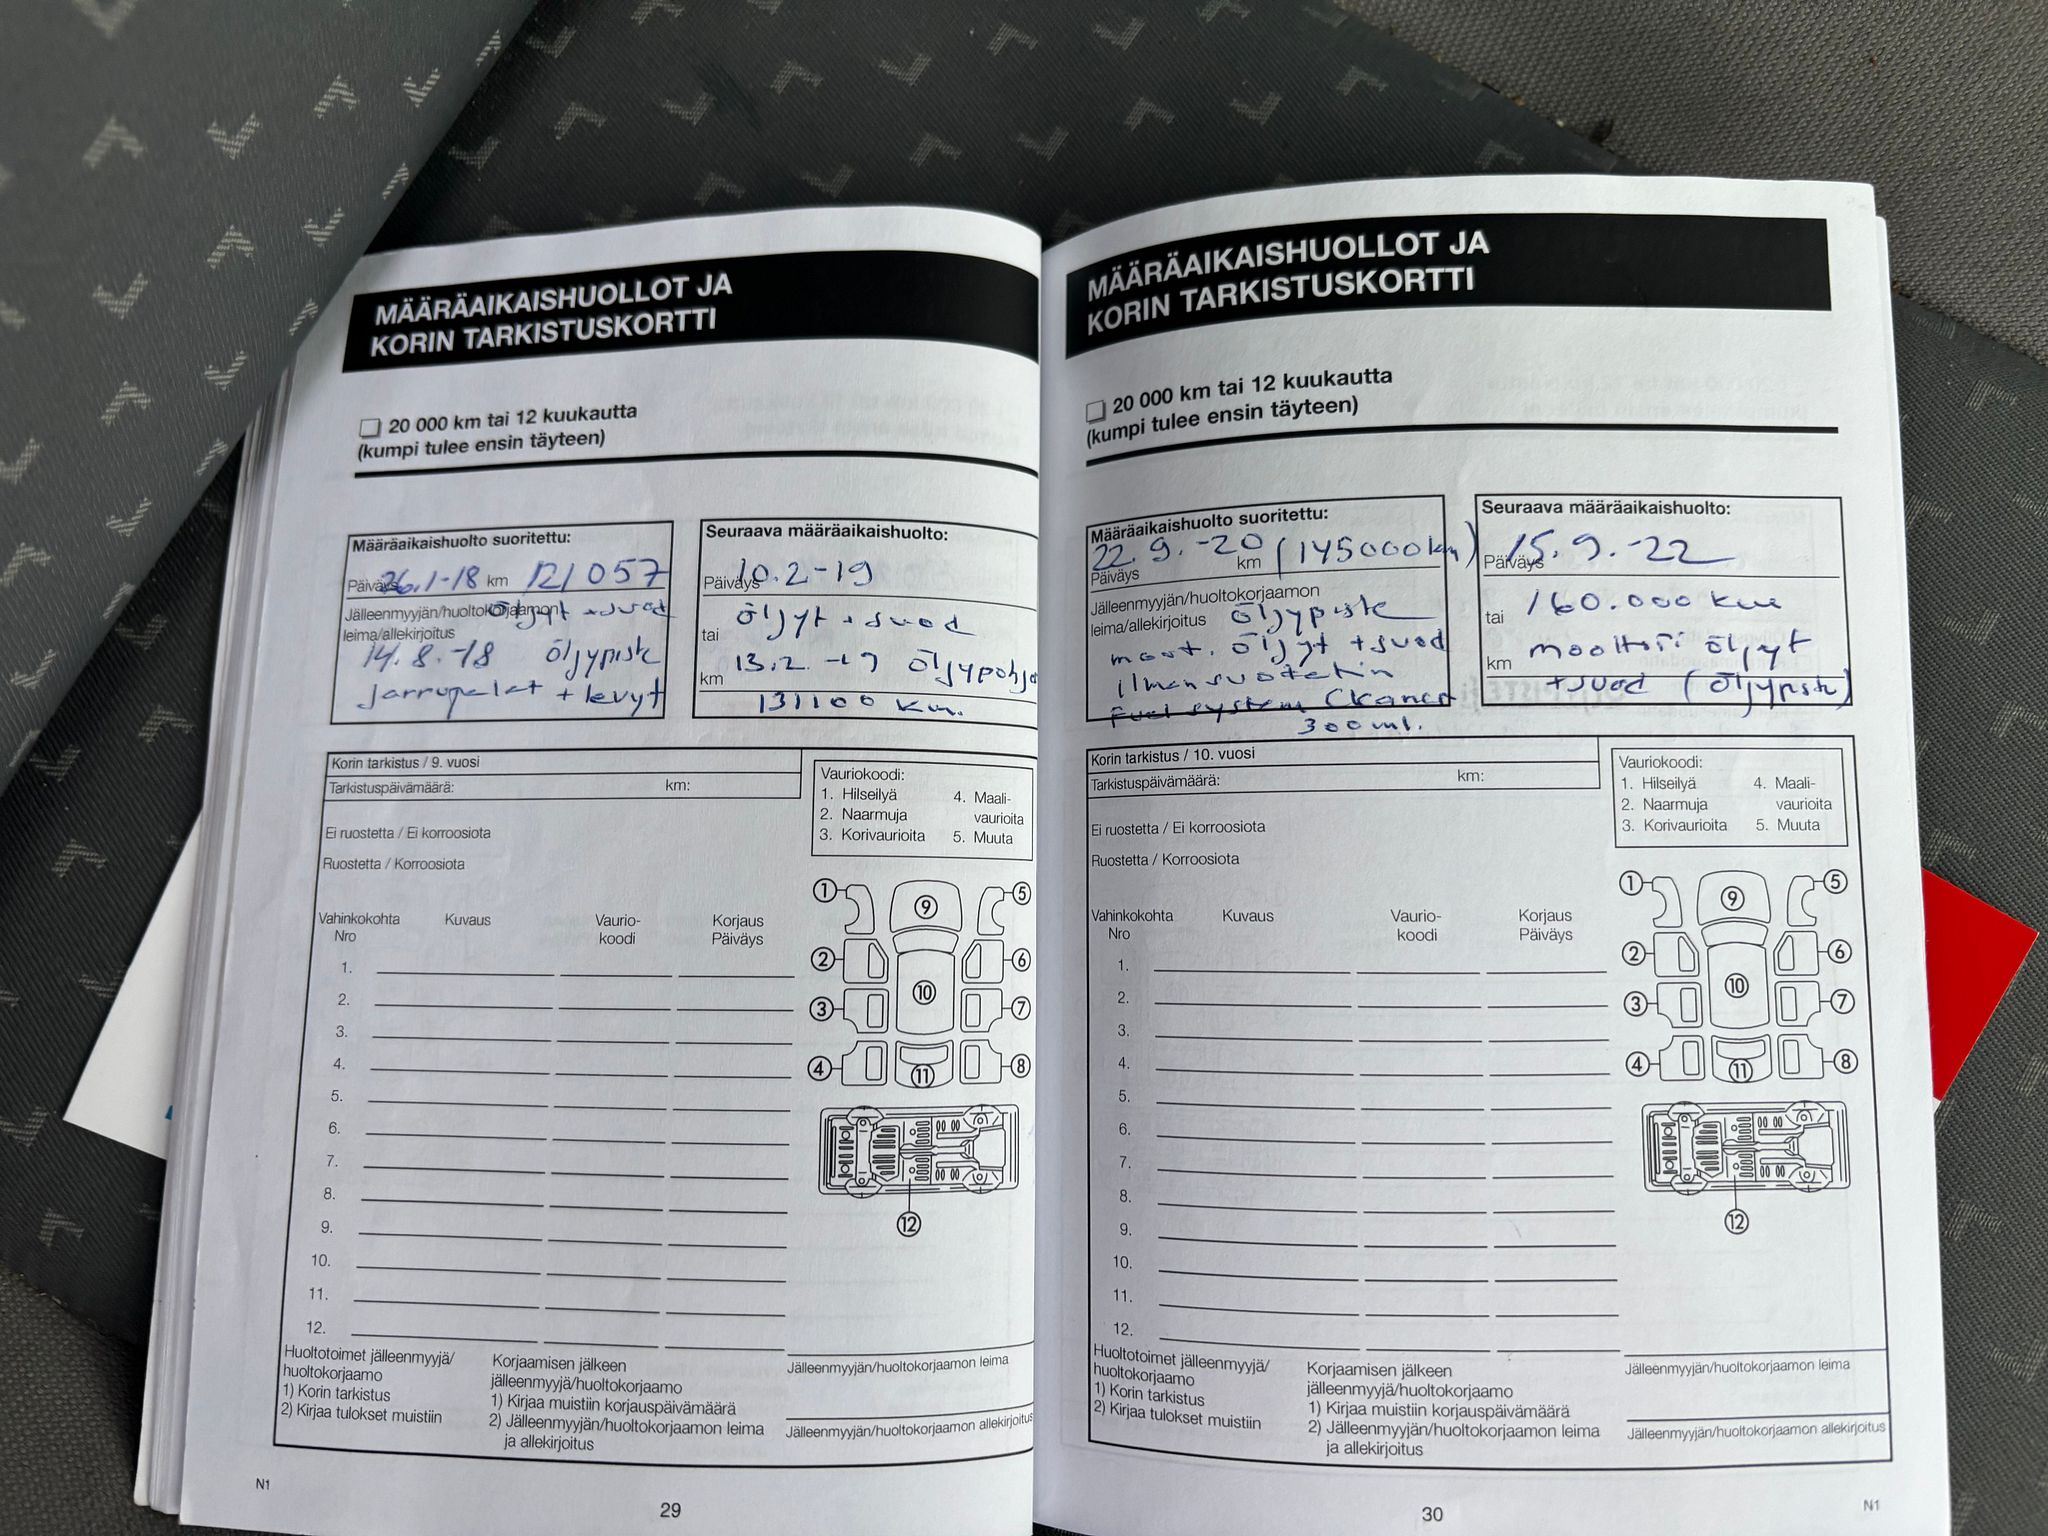 MÄÄRÄAIKAISHUOLLOT JA
KORIN TARKISTUSKORTTI
20 000 km tai 12 kuukautta
(kumpi tulee ensin täyteen)
Määräaikaishuolto suoritettu:
Päiväys 26.1-18 km 121057
Jälleenmyyjän/huoltokorjaamon öljyt + suod
leima/allekirjoitus
14.8.-18 öljypist
jarrupalat + levyt
Seuraava määräaikaishuolto:
Päiväys 10.2-19
öljyt + suod
tai
km 13.2.-19 öljypohja
131100 km.
Korin tarkistus / 9. vuosi
Tarkistuspäivämäärä: km:
Ei ruostetta / Ei korroosiota
Ruostetta / Korroosiota
Vauriokoodi:
1. Hilseilyä 4. Maali-
2. Naarmuja vaurioita
3. Korivaurioita 5. Muuta
Vahinkokohta Kuvaus Vaurio- Korjaus
Nro koodi Päiväys
1.
2.
3.
4.
5.
6.
7.
8.
9.
10.
11.
12.
1 9 5
2 6
3 10 7
4 11 8
12
Huoltotoimet jälleenmyyjä/
huoltokorjaamo
1) Korin tarkistus
2) Kirjaa tulokset muistiin
Korjaamisen jälkeen
jälleenmyyjä/huoltokorjaamo
1) Kirjaa muistiin korjauspäivämäärä
2) Jälleenmyyjän/huoltokorjaamon leima
ja allekirjoitus
Jälleenmyyjän/huoltokorjaamon leima
Jälleenmyyjän/huoltokorjaamon allekirjoitus
N1
29
MÄÄRÄAIKAISHUOLLOT JA
KORIN TARKISTUSKORTTI
20 000 km tai 12 kuukautta
(kumpi tulee ensin täyteen)
Määräaikaishuolto suoritettu:
22.9.-20 (145000km)
Päiväys km
Jälleenmyyjän/huoltokorjaamon
leima/allekirjoitus öljypist
moot. öljyt + suod
ilmansuodatin
Fuel system Cleaner
300 ml.
Seuraava määräaikaishuolto:
Päiväys 15.9.-22
tai 160.000 km
km moottori öljyt
+ suod (öljypist)
Korin tarkistus / 10. vuosi
Tarkistuspäivämäärä: km:
Ei ruostetta / Ei korroosiota
Ruostetta / Korroosiota
Vauriokoodi:
1. Hilseilyä 4. Maali-
2. Naarmuja vaurioita
3. Korivaurioita 5. Muuta
Vahinkokohta Kuvaus Vaurio- Korjaus
Nro koodi Päiväys
1.
2.
3.
4.
5.
6.
7.
8.
9.
10.
11.
12.
1 9 5
2 6
3 10 7
4 11 8
12
Huoltotoimet jälleenmyyjä/
huoltokorjaamo
1) Korin tarkistus
2) Kirjaa tulokset muistiin
Korjaamisen jälkeen
jälleenmyyjä/huoltokorjaamo
1) Kirjaa muistiin korjauspäivämäärä
2) Jälleenmyyjän/huoltokorjaamon leima
ja allekirjoitus
Jälleenmyyjän/huoltokorjaamon leima
Jälleenmyyjän/huoltokorjaamon allekirjoitus
30
N1